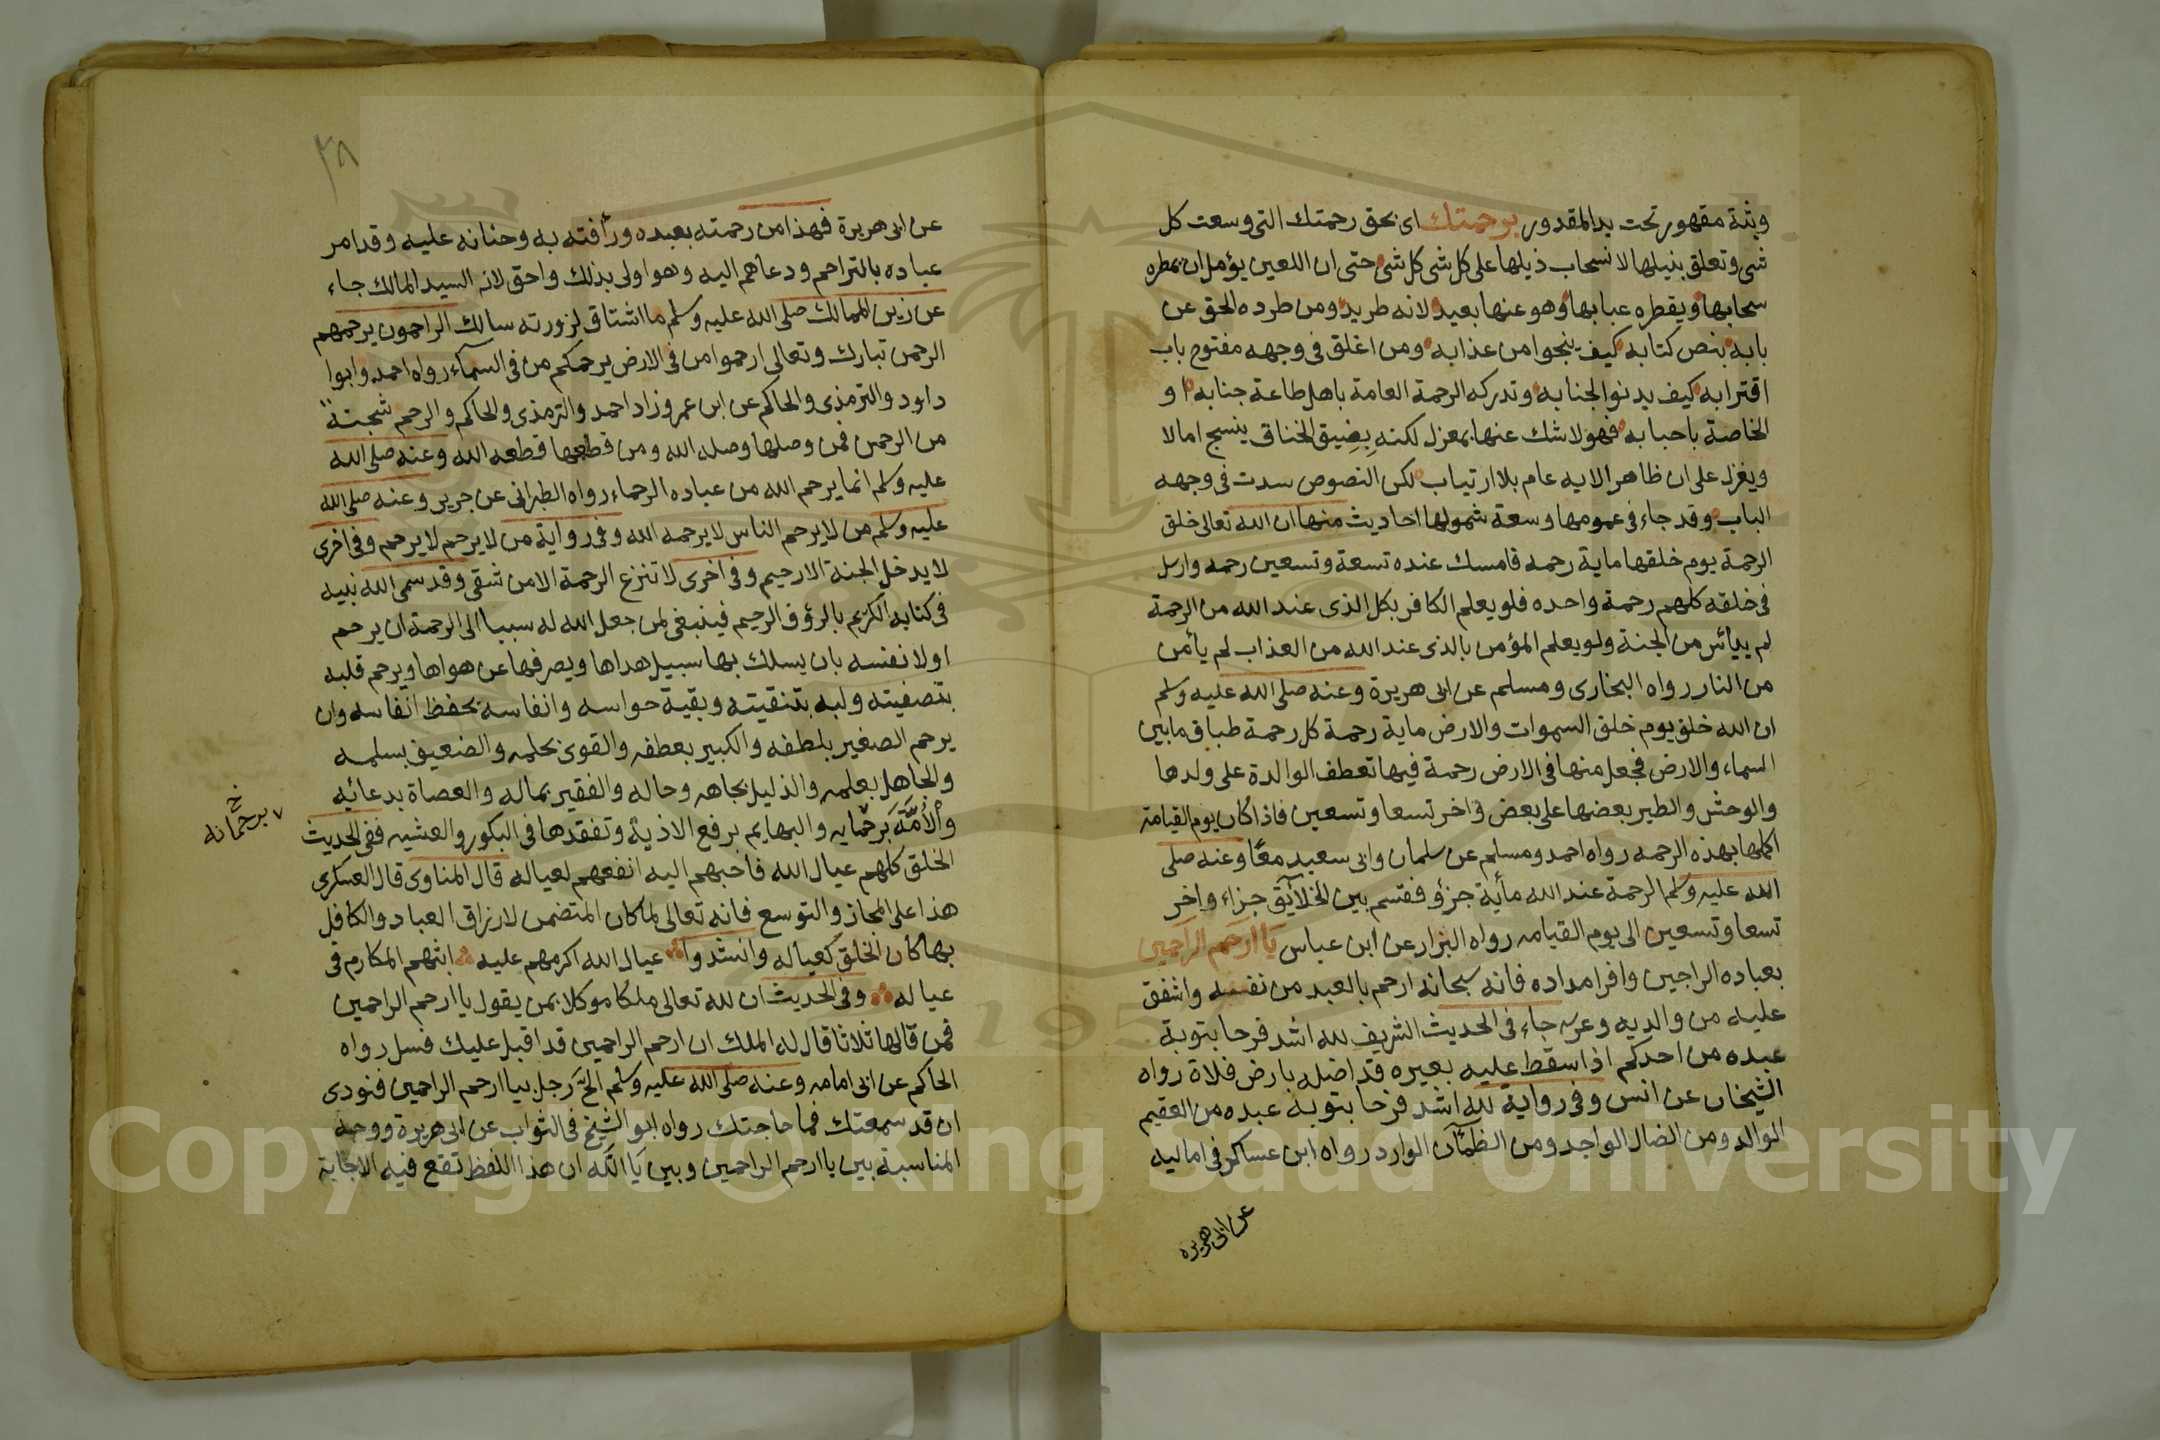 وبثة مقهور تحت يد المقدور برحمتك اى بحق رحمتك التى وسعت كل
شى وتعلق بنيلها لانسحاب ذيلها على كل شى كل شى حتى ان اللعين يؤمل ان يمطره
سحابها ويقطره عبابها وهو عنها بعيد لانه طريد ومن طرده الحق عن
بابه بنص كتابه كيف ينجوا من عذابه ومن اغلق فى وجهه مفتوح باب
اقترابه كيف يدنوا لجنابه وتدركه الرحمة العامة باهل طاعة جنابه او
الخاصة باحبابه فهو لا شك عنها بمعزل لكنه بضيق الخناق ينسج امالا
ويغزل على ان ظاهر الايه عام بلا ارتياب لكن النصوص سدت فى وجهه
الباب وقد جاء فى عمومها وسعة شمولها احاديث منها ان الله تعالى خلق
الرحمة يوم خلقها ماية رحمه فامسك عنده تسعة وتسعين رحمه وارسل
فى خلقه كلهم رحمة واحده فلو يعلم الكافر بكل الذى عند الله من الرحمة
لم ييأس من الجنة ولو يعلم المؤمن بالذى عند الله من العذاب لم يأمن
من النار رواه البخارى ومسلم عن ابى هريرة وعنه صلى الله عليه وسلم
ان الله خلق يوم خلق السموات والارض ماية رحمة كل رحمة طباق ما بين
السماء والارض فجعل منها فى الارض رحمة فيها تعطف الوالدة على ولدها
والوحش والطير بعضها على بعض واخر تسعا وتسعين فاذا كان يوم القيامة
اكملها بهذه الرحمه رواه احمد ومسلم عن سلمان وابى سعيد معًا وعنه صلى
الله عليه وسلم الرحمة عند الله مأية جزؤ فقسم بين الخلآيق جزاء واخر
تسعا وتسعين الى يوم القيامه رواه البزار عن ابن عباس يَا ارحَم الراحمين
بعباده الراجين وافر امداده فانه سبحانه ارحم بالعبد من نفسه واشفق
عليه من والديه وعرسه جاء فى الحديث الشريف لله اشد فرحا بتوبة
عبده من احدكم اذا سقط عليه بعيره قد اضله بارض فلاة رواه
الشيخان عن انس وفى رواية لله اشد فرحا بتوبة عبده من العقيم
الوالد ومن الضال الواجد ومن الظمآن الوارد رواه ابن عساكر فى اماليه
عن ابى هريرة
٣٨
عن ابى هريرة فهذا من رحمته بعبده ورأفته به وحنانه عليه وقد امر
عباده بالتراحم ودعاهم اليه وهو اولى بذلك واحق لانه السيد المالك جاء
عن زين الممالك صلى الله عليه وسلم ما اشتاق لزورته سالك الراحمون يرحمهم
الرحمن تبارك وتعالى ارحموا من فى الارض يرحمكم من فى السمآء رواه احمد وابوا
داود والترمذى والحاكم عن ابن عمر وزاد احمد والترمذى والحاكم والرحم شجنة
من الرحمن فمن وصلها وصله الله ومن قطعها قطعه الله وعنه صلى الله
عليه وسلم انما يرحم الله من عباده الرحماء رواه الطبرانى عن جرير وعنه صلى الله
عليه وسلم من لا يرحم الناس لا يرحمه الله وفى رواية من لا يرحم لا يرحم وفى اخرى
لا يدخل الجنة الا رحيم وفى اخرى لا تنزع الرحمة الا من شقى وقد سمى الله نبيه
فى كتابه الكريم بالرؤف الرحيم فينبغى لمن جعل الله له سبيلا الى الرحمة ان يرحم
اولا نفسه بان يسلك بها سبيل هداها ويصرفها عن هواها ويرحم قلبه
بتصفيته ولبه بتنقيته وبقية حواسه وانفاسه بحفظ انفاسه وان
يرحم الصغير بلطفه والكبير بعطفه والقوى بحلمه والضعيف بسلمه
والجاهل بعلمه والذليل بجاهه وحاله والفقير بماله والعصاة بدعائه
والأمَّة برحمايه والبهايم برفع الاذية وتفقدها فى البكور والعشيه ففى الحديث
٧ برحمانه خ
الخلق كلهم عيال الله فاحبهم اليه انفعهم لعياله قال المناوى قال العسكرى
هذا على المجاز والتوسع فانه تعالى لما كان المتضمن لارزاق العباد والكافل
بها كان الخلق كعياله وانشدوا عيال الله اكرمهم عليه ابثهم المكارم فى
عياله وفى الحديث ان لله تعالى ملكا موكلا بمن يقول يا ارحم الراحمين
فمن قالها ثلاثا قال له الملك ان ارحم الراحمين قد اقبل عليك فسل رواه
الحاكم عن ابى امامه وعنه صلى الله عليه وسلم الحّ رجل بيا ارحم الراحمين فنودى
ان قد سمعتك فما حاجتك رواه ابو الشيخ فى الثواب عن ابى هريرة ووجه
المناسبة بين يا ارحم الراحمين وبين يَا الله ان هذا اللفظ تقع فيه الاجابة
Copyright © King Saud University
1957